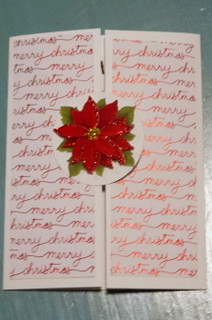 christmas merry christmas
merry christmas merry chri
y christmas merry christmas
christmas merry christmas
merry chri merry chri
y christ christmas
istmas merry christmas
christmas merry christmas
merry christmas merry chri
y christmas merry christmas
istmas merry christmas
merry christmas merry chri
y christmas merry christmas